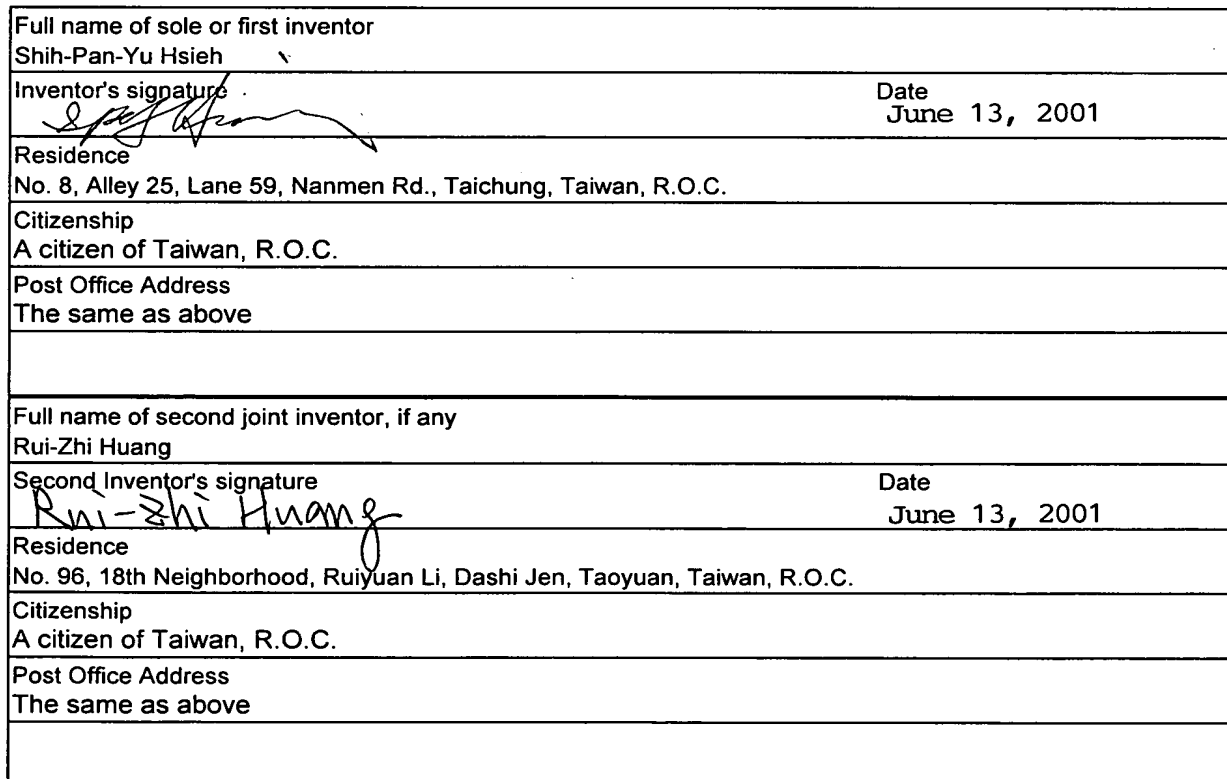 Full name of sole or first inventor
Shih-Pan-Yu Hsieh
Inventor's signature
Date
June 13, 2001
Residence
No. 8, Alley 25, Lane 59, Nanmen Rd., Taichung, Taiwan, R.O.C.
Citizenship
A citizen of Taiwan, R.O.C.
Post Office Address
The same as above
Full name of second joint inventor, if any
Rui-Zhi Huang
Second Inventor's signature
Date
Rui-Zhi Huang
June 13, 2001
Residence
No. 96, 18th Neighborhood, Ruiyuan Li, Dashi Jen, Taoyuan, Taiwan, R.O.C.
Citizenship
A citizen of Taiwan, R.O.C.
Post Office Address
The same as above